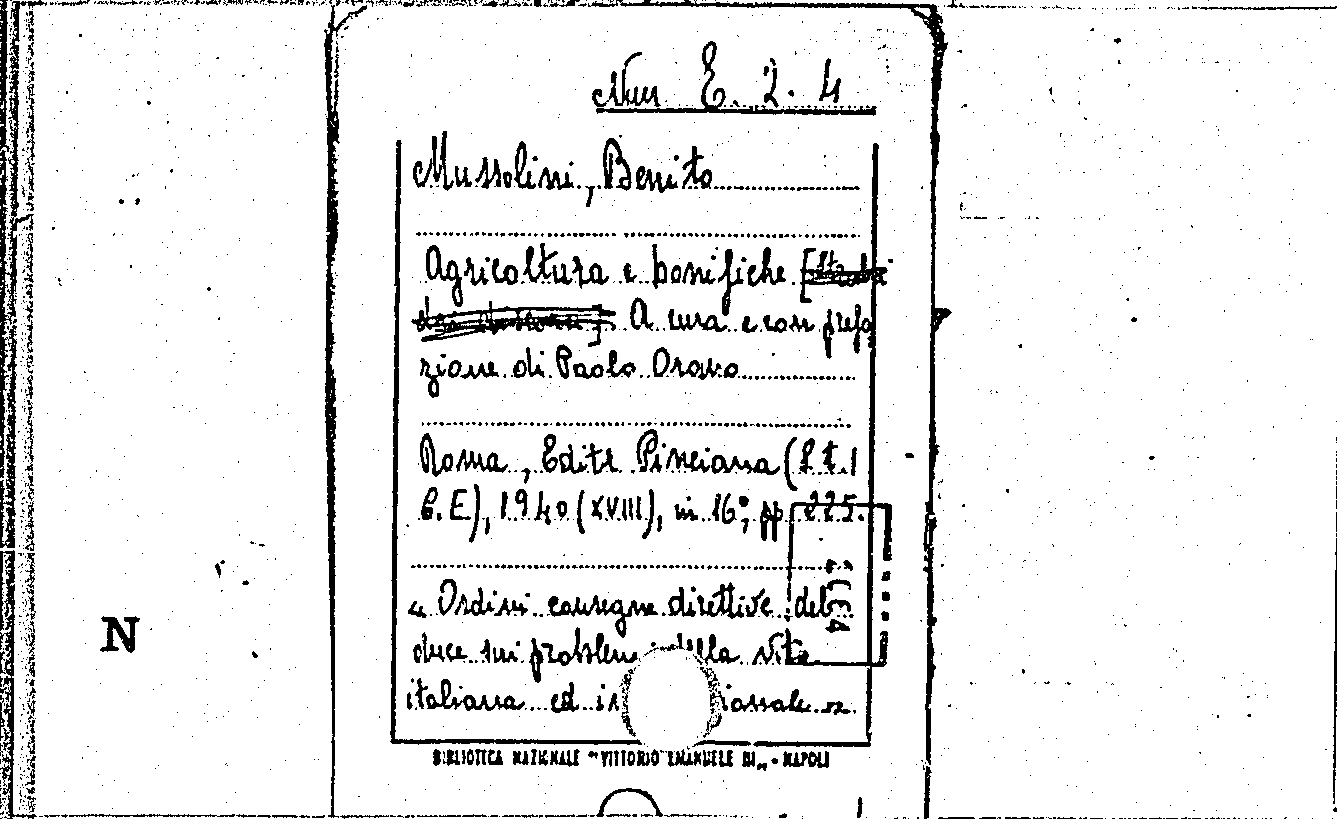 Nun E. 2. 4
Mussolini, Benito
Agricoltura e bonifiche [
A cura e con prefa
zione di Paolo Orano
Roma, Editr Pinciana (S. t. l
C. E), 1940 (XVIII), in 16°, pp 225.
« Ordini consegne direttive del
duce sui problemi della vita
italiana ed in ionale »
BIBLIOTECA NAZIONALE "VITTORIO EMANUELE III„ - NAPOLI
N